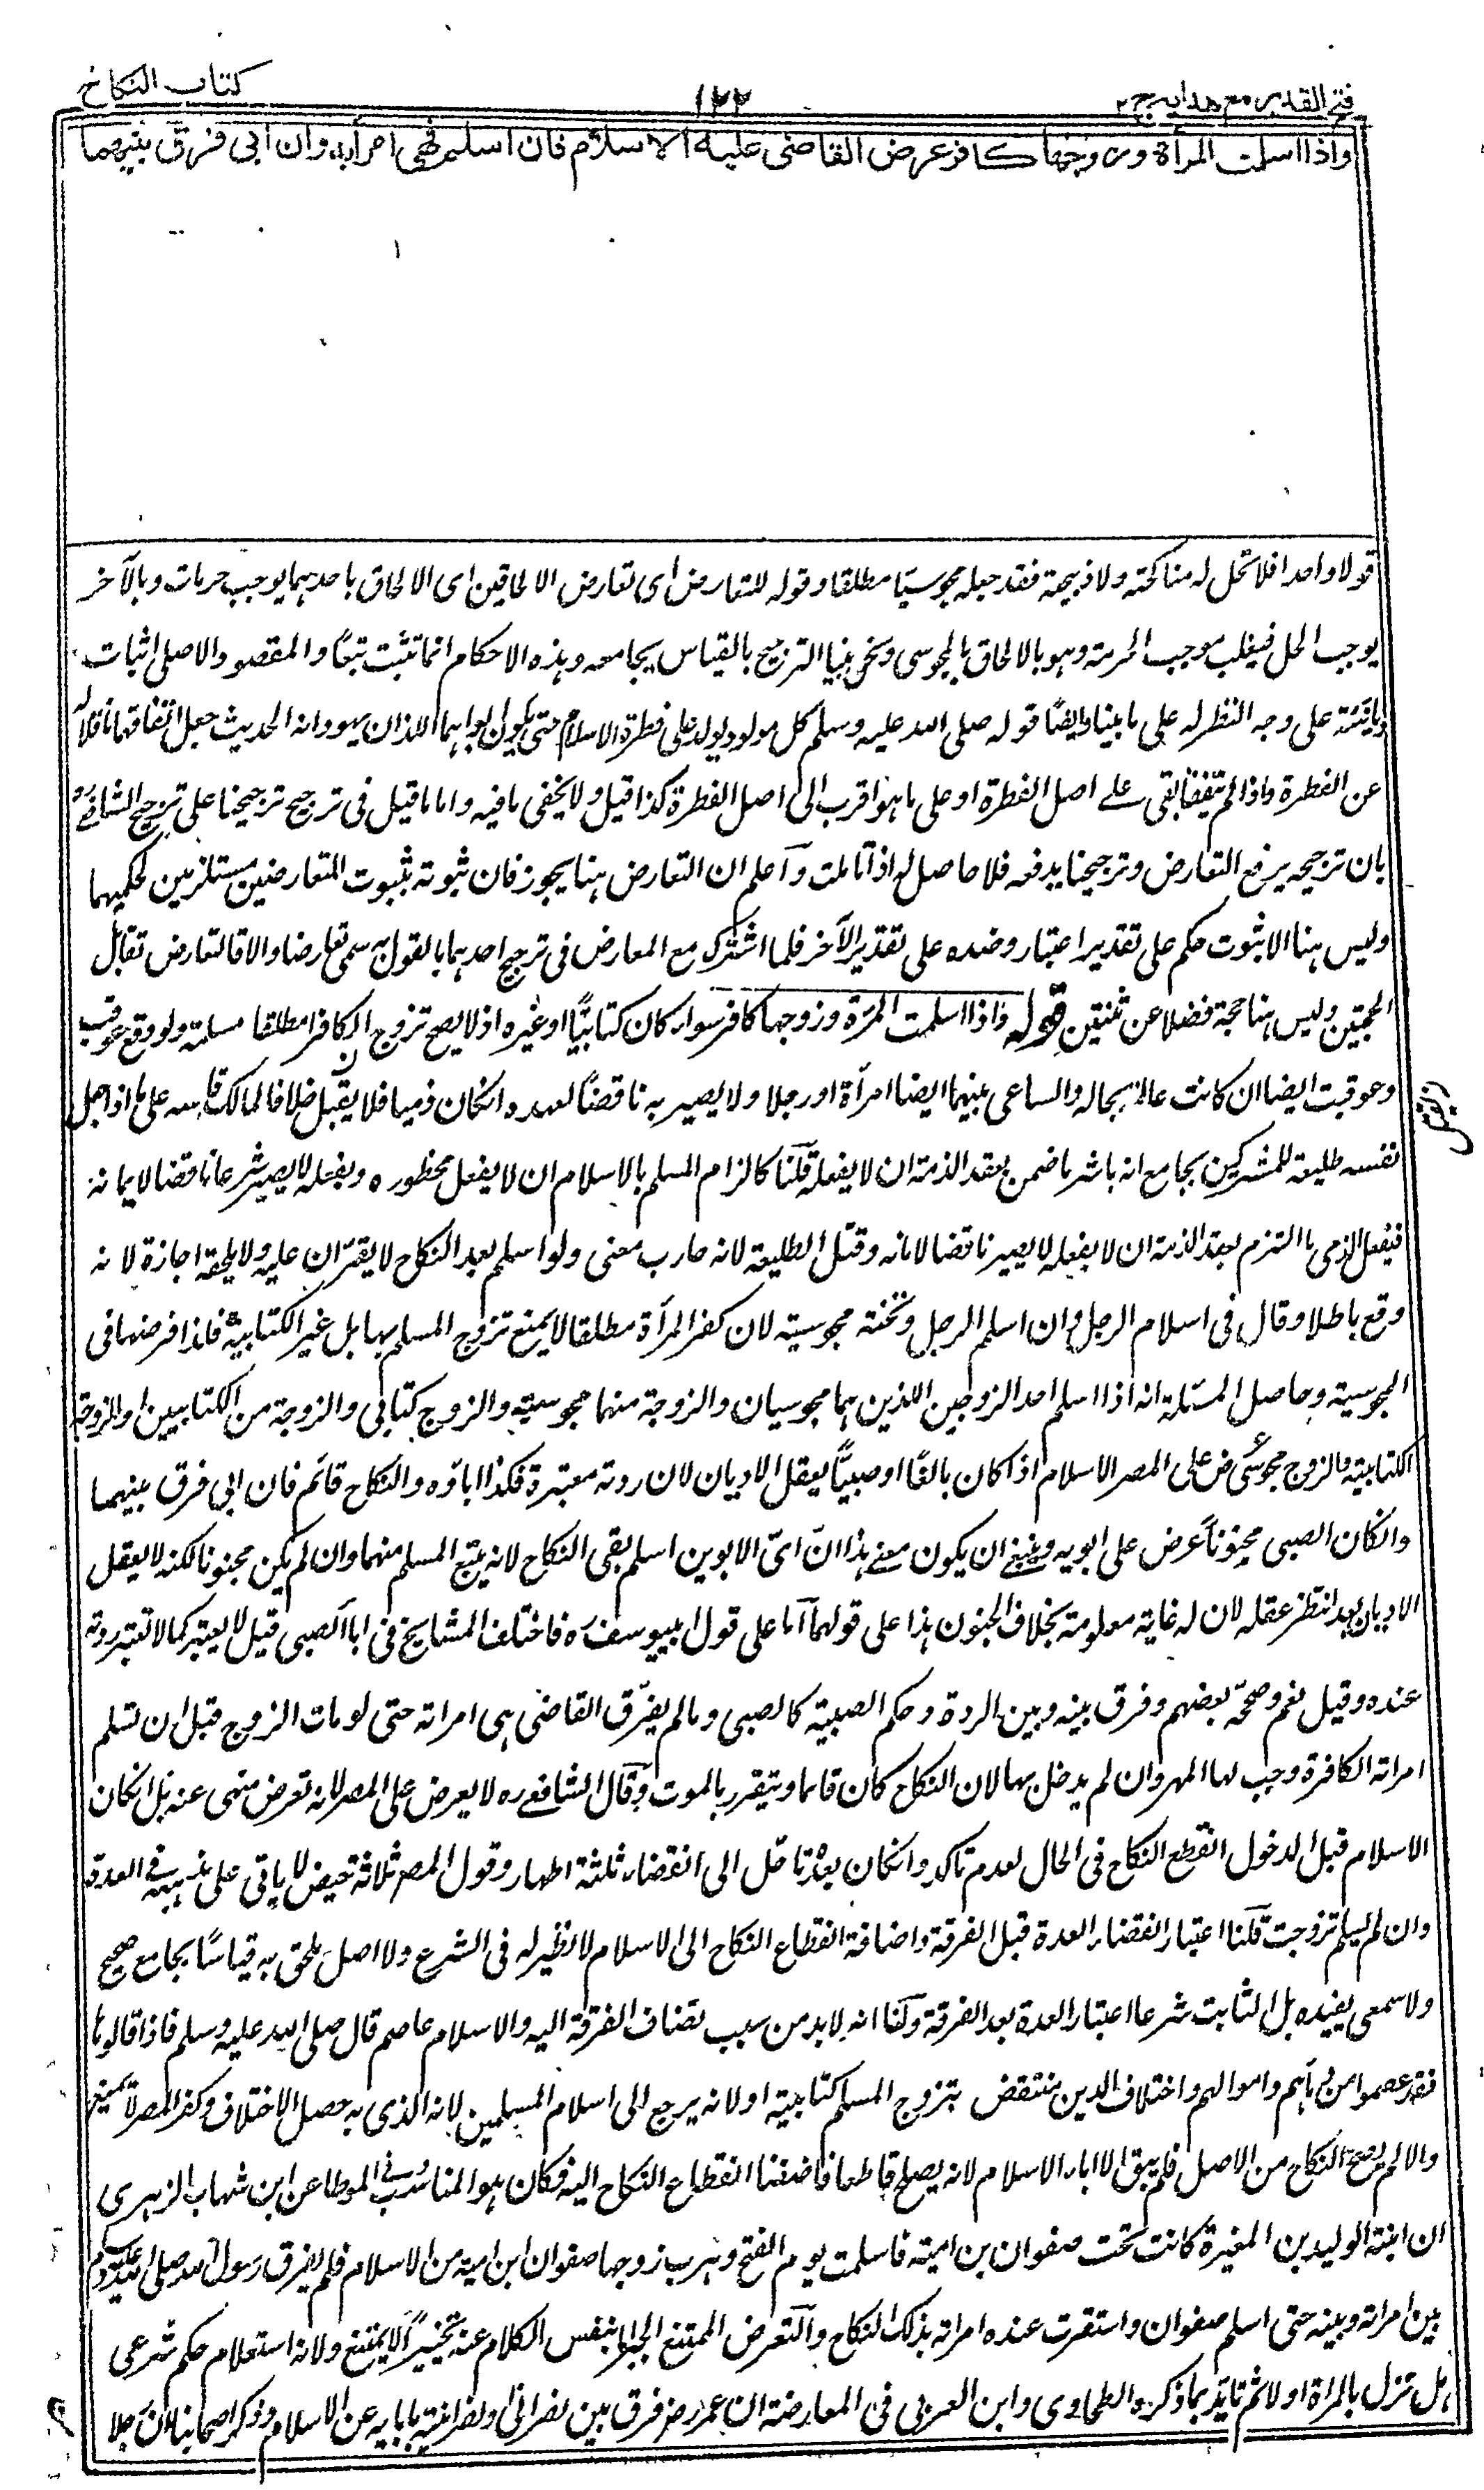 فتح القدير مع هدايه ج ٢
١٢٢
كتاب النكاح
واذا اسلمت المرأة وزوجها كافر عرض القاضى عليه الاسلام فان اسلم فهى امرأته وان ابى فرق بينهما
قولا واحدا فلا تحل له مناكحته ولا ذبيحته فقد جعله مجوسيا مطلقا وقوله للتعارض اى تعارض الالحاقين اى الالحاق باحدهما يوجب حرمات وبالآخر
يوجب الحل فيغلب موجب الحرمة وهو بالالحاق بالمجوسى ونحن بينا الترجيح بالقياس بجامعه وهذه الاحكام انما تثبت تبعًا والمقصود الاصلى اثبات
ديانته على وجه النظر له على ما بينا وايضًا قوله صلى الله عليه وسلم كل مولود يولد على فطرة الاسلام حتى يكون ابواهما اللذان يهودانه الحديث جعل اتفاقهما ناقلا له
عن الفطرة واذا لم يتفقا بقى على اصل الفطرة او على ما هو اقرب الى اصل الفطرة كذا قيل ولا يخفى ما فيه واما ما قيل فى ترجيح ترجيحنا على ترجيح الشافعے رہ
بان ترجيحه يرفع التعارض وترجيحنا يدفعه فلا حاصل له اذا تأملت وآعلم ان التعارض هنا يجوز فان ثبوته بثبوت المتعارضين مستلزمين لحكميهما
وليس هنا الا ثبوت حكم على تقدير اعتبار وضده على تقدير الآخر فلما اشترك مع المعارض فى ترجيح احدهما بالقول به سمى تعارضا والا فالتعارض تقابل
الحجتين وليس هنا حجة فضلا عن ثنتين قوله واذا اسلمت المرءة وزوجها كافر سواء كان كتابيًّا او غيره اذ لا يصح تزوج الكافر مطلقا مسلمة ولو وقع عوقب
وعوقبت ايضا ان كانت عالمة بحاله والساعى بينهما ايضا امرأة او رجلا ولا يصير به ناقضًا لعهده انكان ذميا فلا يقتل خلافا لمالك قاسه على ما اذا جعل
نفسه طليعة للمشركين بجامع انه باشر ما ضمن بعقد الذمة ان لا يفعله قلنا كالزام المسلم بالاسلام ان لا يفعل محظوره وبفعله لا يصير شرعا ناقضا لايمانه
ففعل الذمى ما التزم بعقد الذمة ان لا يفعله لا يصير ناقضا لامانه وقتل الطليعة لانه حارب معنى ولو اسلم بعد النكاح لا يقرّان عليه ولا يلحقه اجازة لانه
وقع باطلا وقال فى اسلام الرجل وان اسلم الرجل وتحته مجوسية لان كفر المرأة مطلقا لا يمنع تزوج المسلم بها بل غير الكتابية فلذا فرضها فى
المجوسية وحاصل المسئلة انه اذا اسلم احد الزوجين اللذين هما مجوسيان والزوجة منهما مجوسية والزوج كتابى والزوجة من الكتابيين او الزوجة
الكتابية والزوج مجوسى عرض على المصر الاسلام اذا كان بالغًا او صبيًّا يعقل الاديان لان ردته معتبرة فكذا اباؤه والنكاح قائم فان ابى فرق بينهما
وانكان الصبى مجنونًا عرض على ابويه وينبغى ان يكون معنے هذا انّ اىّ الابوين اسلم بقى النكاح لانه يتبع المسلم منهما وان لم يكن مجنونا لكنه لا يعقل
الاديان بعد انتظر عقله لان له غاية معلومة بخلاف الجنون هذا على قولهما اما على قول ابييوسف رہ فاختلف المشايخ فى اباء الصبى قيل لا يعتبر كما لا تعتبر ردته
عنده وقيل نعم وصححّه بعضهم وفرق بينه وبين الردة وحكم الصبية كالصبى وما لم يفرّق القاضى هى امراته حتى لو مات الزوج قبل ان تسلم
امراته الكافرة وجب لها المهر وان لم يدخل بها لان النكاح كان قائما ويتقرر بالموت وقال الشافعے رہ لا يعرض على المصر لانه تعرض منهى عنه بل انكان
الاسلام قبل الدخول انقطع النكاح فى الحال لعدم تاكده وانكان بعده تاجل الى انقضاء ثلثة اطهار وقول المصر ثلاثة حيض لا ياتى على مذهبه فى العدة
وان لم يسلم تزوجت قلنا اعتبار انقضاء العدة قبل الفرقة واضافة انقطاع النكاح الى الاسلام لا نظير له فى الشرع ولا اصل يلحق به قياسًا بجامع صحيح
ولا سمعى يفيده بل الثابت شرعا اعتبار العدة بعد الفرقة ولنا انه لابد من سبب تضاف الفرقة اليه والاسلام عاصم قال صلى الله عليه وسلم فاذا قالوها
فقد عصموا منى دماءهم واموالهم واختلاف الدين منتقض بتزوج المسلم كتابية او لانه يرجع الى اسلام المسلمين لانه الذى به حصل الاختلاف وكفر المصر لا يمنع
والا لم يصح النكاح من الاصل فلم يبق الا اباء الاسلام لانه يصلح قاطعا فاضفنا انقطاع النكاح اليه فكان هو المناسب وفى الموطا عن ابن شهاب الزهرى
ان ابنة الوليد بن المغيرة كانت تحت صفوان بن امية فاسلمت يوم الفتح وهرب زوجها صفوان ابن امية من الاسلام فلم يفرق رسول الله صلى الله عليه وسلم
بين امراته وبينه حتى اسلم صفوان واستقرت عنده امراته بذلك النكاح والتعرض الممتنع الجبر اما بنفس الكلام عنه تخييرًا لا يمتنع ولانه استعلام حكم شرعى
هل تنزل بالمراة او لا ثم تأيد بما ذكره الطحاوى وابن العربى فى المعارضة ان عمر رض فرق بين نصرانى ونصرانية بابائه عن الاسلام وذكر اصحابنا ان رجلا